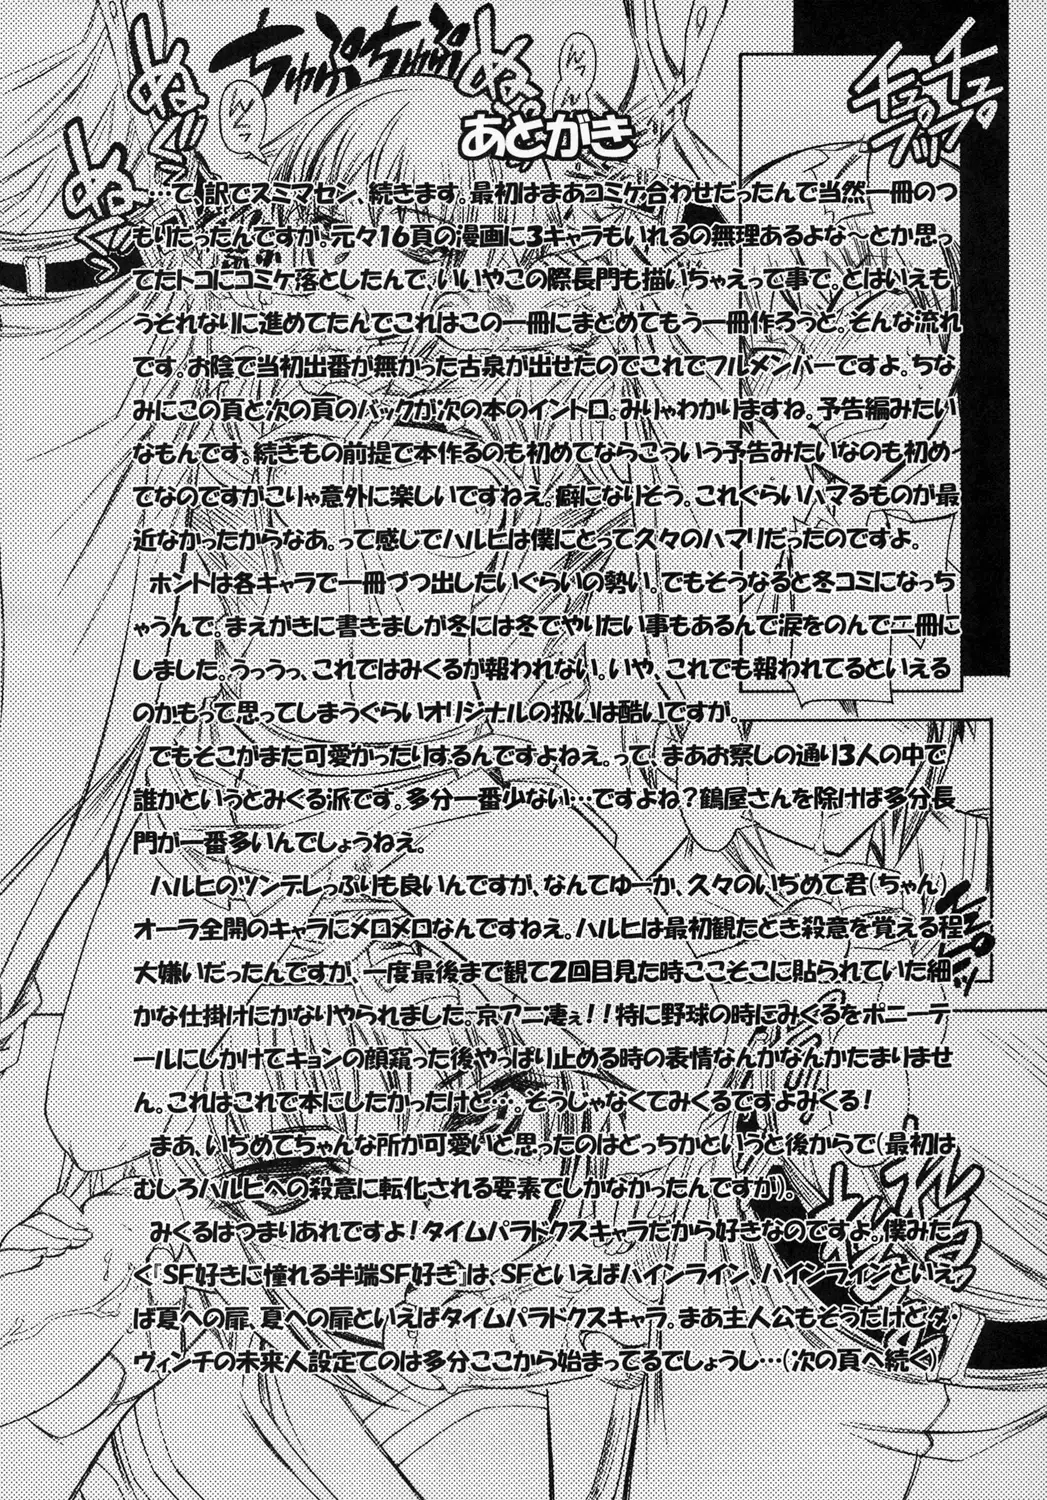 ぬぐ
ちゅぷちゅぷ
ぬっ
ぬぐ
チュプ
チュプ
んっ
んっ
あとがき
…て、訳でスミマセン、続きます。最初はまあコミケ合わせだったんで当然一冊のつ
もりだったんですが。元々16頁の漫画に3キャラもいれるの無理あるよな〜とか思っ
てたトコにコミケ落としたんで、いいやこの際長門も描いちゃえって事で。とはいえも
うそれなりに進めてたんでこれはこの一冊にまとめてもう一冊作ろうと。そんな流れ
です。お陰で当初出番が無かった古泉が出せたのでこれでフルメンバーですよ。ちな
みにこの頁と次の頁のバックが次の本のイントロ。みりゃわかりますね。予告編みたい
なもんです。続きもの前提で本作るのも初めてならこういう予告みたいなのも初め
てなのですがこりゃ意外に楽しいですねえ。癖になりそう。これぐらいハマるものが最
近なかったからなあ。って感じでハルヒは僕にとって久々のハマりだったのですよ。
ホントは各キャラで一冊づつ出したいぐらいの勢い。でもそうなると冬コミになっち
ゃうんで。まえがきに書きましが冬には冬でやりたい事もあるんで涙をのんで二冊に
しました。うっうっ、これではみくるが報われない。いや、これでも報われてるといえる
のかもって思ってしまうぐらいオリジナルの扱いは酷いですが。
でもそこがまた可愛がったりするんですよねえ。って、まあお察しの通り3人の中で
誰かというとみくる派です。多分一番少ない…ですよね?鶴屋さんを除けば多分長
門が一番多いんでしょうねえ。
ハルヒのツンデレっぷりも良いんですが、なんてゆーか、久々のいぢめて君(ちゃん)
オーラ全開のキャラにメロメロなんですねえ。ハルヒは最初観たとき殺意を覚える程
大嫌いだったんですが、一度最後まで観て2回目見た時ここそこに貼られていた細
かな仕掛けにかなりやられました。京アニ凄ぇ!!特に野球の時にみくるをポニーテ
ールにしかけてキョンの顔窺った後やっぱり止める時の表情なんかなんかたまりませ
ん。これはこれで本にしたかったけど…。そうじゃなくてみくるですよみくる!
まあ、いぢめてちゃんな所が可愛いと思ったのはどっちかというと後からで(最初は
むしろハルヒへの殺意に転化される要素でしかなかったんですが)。
みくるはつまりあれですよ!タイムパラドクスキャラだから好きなのですよ。僕みた
く『SF好きに憧れる半端SF好き』は、SFといえばハインライン、ハインラインといえ
ば夏への扉、夏への扉といえばタイムパラドクスキャラ。まあ主人公もそうだけどダ・
ヴィンチの未来人設定てのは多分ここから始まってるでしょうし…(次の頁へ続く)